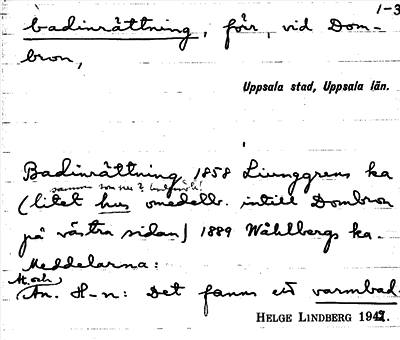 1-3
badinrättning, förr, vid Dom-
bron,
Uppsala stad, Uppsala län.
Badinrättning 1858 Ljunggrens ka
samma som nu?
(litet hus omedelb. intill Dombron
på västra sidan) 1889 Wåhlbergs ka.
Meddelarna:
M. och
An. H-n: Det fanns ett varmbad.
HELGE LINDBERG 1942.